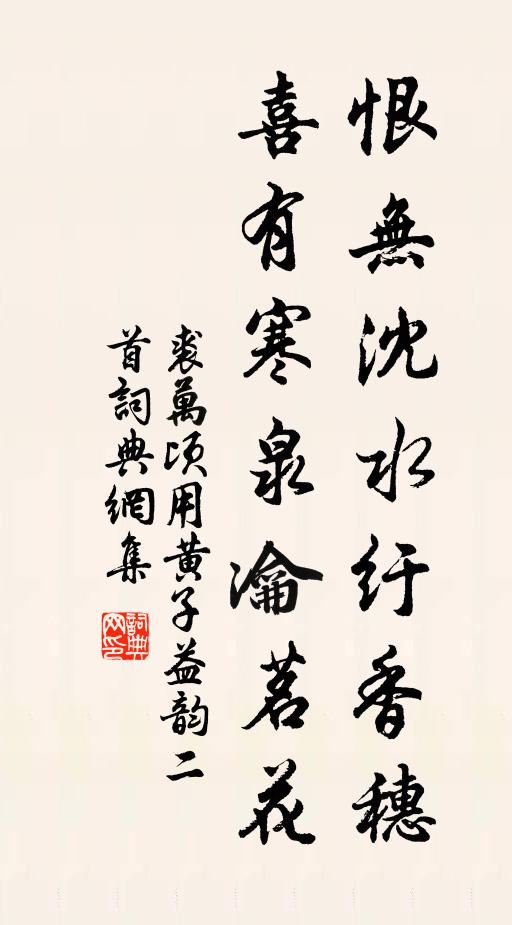 恨無沈水紆香穗
喜有寒泉瀹茗花
裘萬頃用黄子益韵二
首詞典網集
詞典
网印